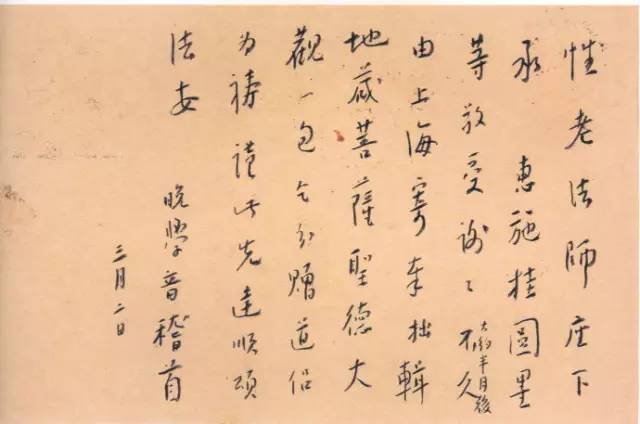 性老法師座下
承 惠施桂圓墨
等敬受謝々不久
大約半月後
由上海寄奉拙輯
地藏菩薩聖德大
觀一包乞分贈道侶
為禱謹此先達順頌
法安 晚學音稽首
三月二日